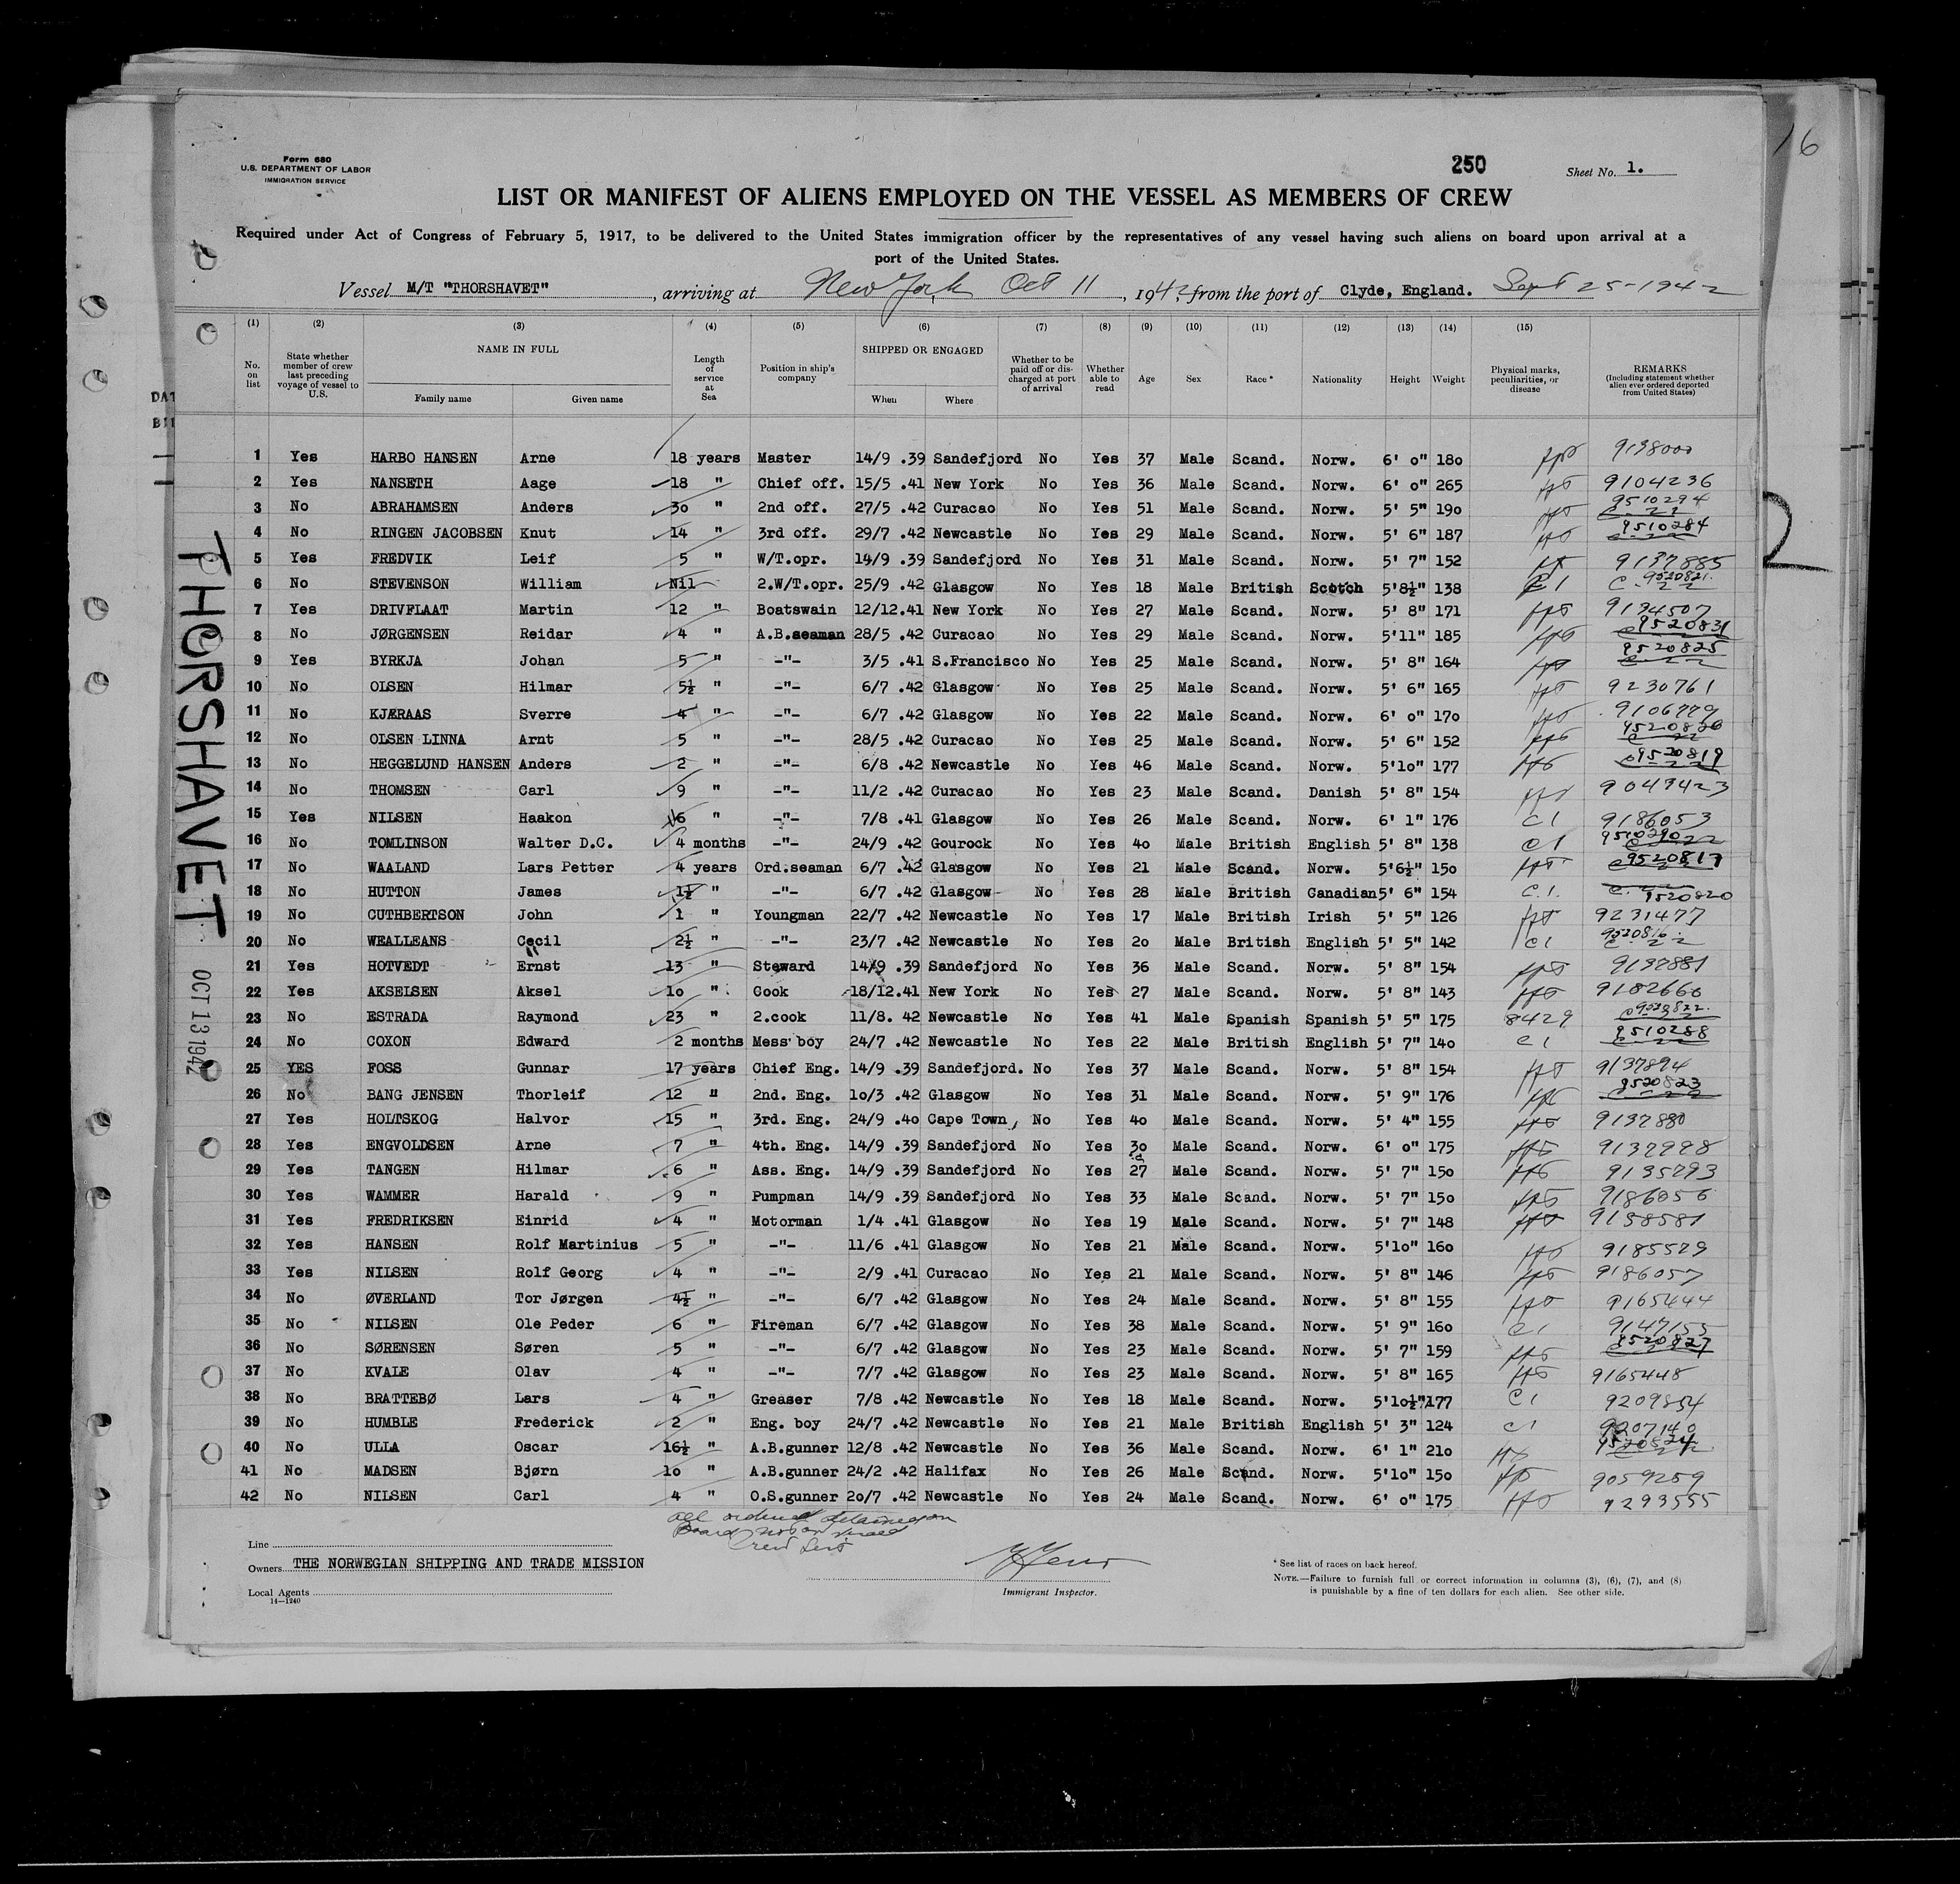 16
Form 680
U.S. DEPARTMENT OF LABOR
IMMIGRATION SERVICE
250
Sheet No. 1.
LIST OR MANIFEST OF ALIENS EMPLOYED ON THE VESSEL AS MEMBERS OF CREW
Required under Act of Congress of February 5, 1917, to be delivered to the United States immigration officer by the representatives of any vessel having such aliens on board upon arrival at a
port of the United States.
Vessel M/T "THORSHAVET", arriving at New York Oct 11, 1942, from the port of Clyde, England. Sept 25-1942
(1) (2) (3) (4) (5) (6) (7) (8) (9) (10) (11) (12) (13) (14) (15)
No. on list State whether member of crew last preceding voyage of vessel to U.S. NAME IN FULL Family name Given name Length of service at Sea Position in ship's company SHIPPED OR ENGAGED When Where Whether to be paid off or discharged at port of arrival Whether able to read Age Sex Race* Nationality Height Weight Physical marks, peculiarities, or disease REMARKS (Including statement whether alien ever ordered deported from United States)
1 Yes HARBO HANSEN Arne 18 years Master 14/9 .39 Sandefjord No Yes 37 Male Scand. Norw. 6' 0" 180 9138000
2 Yes NANSETH Aage 18 " Chief off. 15/5 .41 New York No Yes 36 Male Scand. Norw. 6' 0" 265 9104236
3 No ABRAHAMSEN Anders 30 " 2nd off. 27/5 .42 Curacao No Yes 51 Male Scand. Norw. 5' 5" 190 9510294
4 No RINGEN JACOBSEN Knut 14 " 3rd off. 29/7 .42 Newcastle No Yes 29 Male Scand. Norw. 5' 6" 187 9510284
5 Yes FREDVIK Leif 5 " W/T.opr. 14/9 .39 Sandefjord No Yes 31 Male Scand. Norw. 5' 7" 152 9137885
6 No STEVENSON William Nil 2.W/T.opr. 25/9 .42 Glasgow No Yes 18 Male British Scotch 5'8½" 138 C1 9520821
7 Yes DRIVFLAAT Martin 12 " Boatswain 12/12.41 New York No Yes 27 Male Scand. Norw. 5' 8" 171 9134507
8 No JØRGENSEN Reidar 4 " A.B.seaman 28/5 .42 Curacao No Yes 29 Male Scand. Norw. 5'11" 185 9520831
9 Yes BYRKJA Johan 5 " -"- 3/5 .41 S.Francisco No Yes 25 Male Scand. Norw. 5' 8" 164 9520825
10 No OLSEN Hilmar 5½ " -"- 6/7 .42 Glasgow No Yes 25 Male Scand. Norw. 5' 6" 165 9230761
11 No KJÆRAAS Sverre 4 " -"- 6/7 .42 Glasgow No Yes 22 Male Scand. Norw. 6' 0" 170 9106779
12 No OLSEN LINNA Arnt 5 " -"- 28/5 .42 Curacao No Yes 25 Male Scand. Norw. 5' 6" 152
13 No HEGGELUND HANSEN Anders 2 " -"- 6/8 .42 Newcastle No Yes 46 Male Scand. Norw. 5'10" 177 9520819
14 No THOMSEN Carl 9 " -"- 11/2 .42 Curacao No Yes 23 Male Scand. Danish 5' 8" 154 9049423
15 Yes NILSEN Haakon 6 " -"- 7/8 .41 Glasgow No Yes 26 Male Scand. Norw. 6' 1" 176 C1 9186053
16 No TOMLINSON Walter D.C. 4 months -"- 24/9 .42 Gourock No Yes 40 Male British English 5' 8" 138 C1 9510290
17 No WAALAND Lars Petter 4 years Ord.seaman 6/7 .42 Glasgow No Yes 21 Male Scand. Norw. 5'6½" 150 9520817
18 No HUTTON James 1½ " -"- 6/7 .42 Glasgow No Yes 28 Male British Canadian 5' 6" 154 C1. 9520820
19 No CUTHBERTSON John 1 " Youngman 22/7 .42 Newcastle No Yes 17 Male British Irish 5' 5" 126 9231477
20 No WEALLEANS Cecil 2½ " -"- 23/7 .42 Newcastle No Yes 20 Male British English 5' 5" 142 C1 9520816
21 Yes HOTVEDT Ernst 13 " Steward 14/9 .39 Sandefjord No Yes 36 Male Scand. Norw. 5' 8" 154 9137881
22 Yes AKSELSEN Aksel 10 " Cook 18/12.41 New York No Yes 27 Male Scand. Norw. 5' 8" 143 9182660
23 No ESTRADA Raymond 23 " 2.cook 11/8. 42 Newcastle No Yes 41 Male Spanish Spanish 5' 5" 175 8429 9520822
24 No COXON Edward 2 months Mess boy 24/7 .42 Newcastle No Yes 22 Male British English 5' 7" 140 C1 9510288
25 YES FOSS Gunnar 17 years Chief Eng. 14/9 .39 Sandefjord. No Yes 37 Male Scand. Norw. 5' 8" 154 9137894
26 No BANG JENSEN Thorleif 12 " 2nd. Eng. 10/3 .42 Glasgow No Yes 31 Male Scand. Norw. 5' 9" 176 9520823
27 Yes HOLTSKOG Halvor 15 " 3rd. Eng. 24/9 .40 Cape Town, No Yes 40 Male Scand. Norw. 5' 4" 155 9137880
28 Yes ENGVOLDSEN Arne 7 " 4th. Eng. 14/9 .39 Sandefjord No Yes 30 Male Scand. Norw. 6' 0" 175
29 Yes TANGEN Hilmar 6 " Ass. Eng. 14/9 .39 Sandefjord No Yes 27 Male Scand. Norw. 5' 7" 150 9135793
30 Yes WAMMER Harald 9 " Pumpman 14/9 .39 Sandefjord No Yes 33 Male Scand. Norw. 5' 7" 150 9186056
31 Yes FREDRIKSEN Einrid 4 " Motorman 1/4 .41 Glasgow No Yes 19 Male Scand. Norw. 5' 7" 148 9158581
32 Yes HANSEN Rolf Martinius 5 " -"- 11/6 .41 Glasgow No Yes 21 Male Scand. Norw. 5'10" 160 9185529
33 Yes NILSEN Rolf Georg 4 " -"- 2/9 .41 Curacao No Yes 21 Male Scand. Norw. 5' 8" 146 9186057
34 No ØVERLAND Tor Jørgen 4½ " -"- 6/7 .42 Glasgow No Yes 24 Male Scand. Norw. 5' 8" 155 9165444
35 No NILSEN Ole Peder 6 " Fireman 6/7 .42 Glasgow No Yes 38 Male Scand. Norw. 5' 9" 160 C1 9147155
36 No SØRENSEN Søren 5 " -"- 6/7 .42 Glasgow No Yes 23 Male Scand. Norw. 5' 7" 159 9520827
37 No KVALE Olav 4 " -"- 7/7 .42 Glasgow No Yes 23 Male Scand. Norw. 5' 8" 165 9165448
38 No BRATTEBØ Lars 4 " Greaser 7/8 .42 Newcastle No Yes 18 Male Scand. Norw. 5'10½" 177 C1 9209854
39 No HUMBLE Frederick 2 " Eng. boy 24/7 .42 Newcastle No Yes 21 Male British English 5' 3" 124 C1 9207140
40 No ULLA Oscar 16½ " A.B.gunner 12/8 .42 Newcastle No Yes 36 Male Scand. Norw. 6' 1" 210 9520824
41 No MADSEN Bjørn 10 " A.B.gunner 24/2 .42 Halifax No Yes 26 Male Scand. Norw. 5'10" 150 9059259
42 No NILSEN Carl 4 " O.S.gunner 20/7 .42 Newcastle No Yes 24 Male Scand. Norw. 6' 0" 175 9293555
All ordered detained on
Board
Crew List
Line
Owners THE NORWEGIAN SHIPPING AND TRADE MISSION
Local Agents
14—1240
Immigrant Inspector.
* See list of races on back hereof.
NOTE.—Failure to furnish full or correct information in columns (3), (6), (7), and (8)
is punishable by a fine of ten dollars for each alien. See other side.
THORSHAVET
OCT 13 1942
2